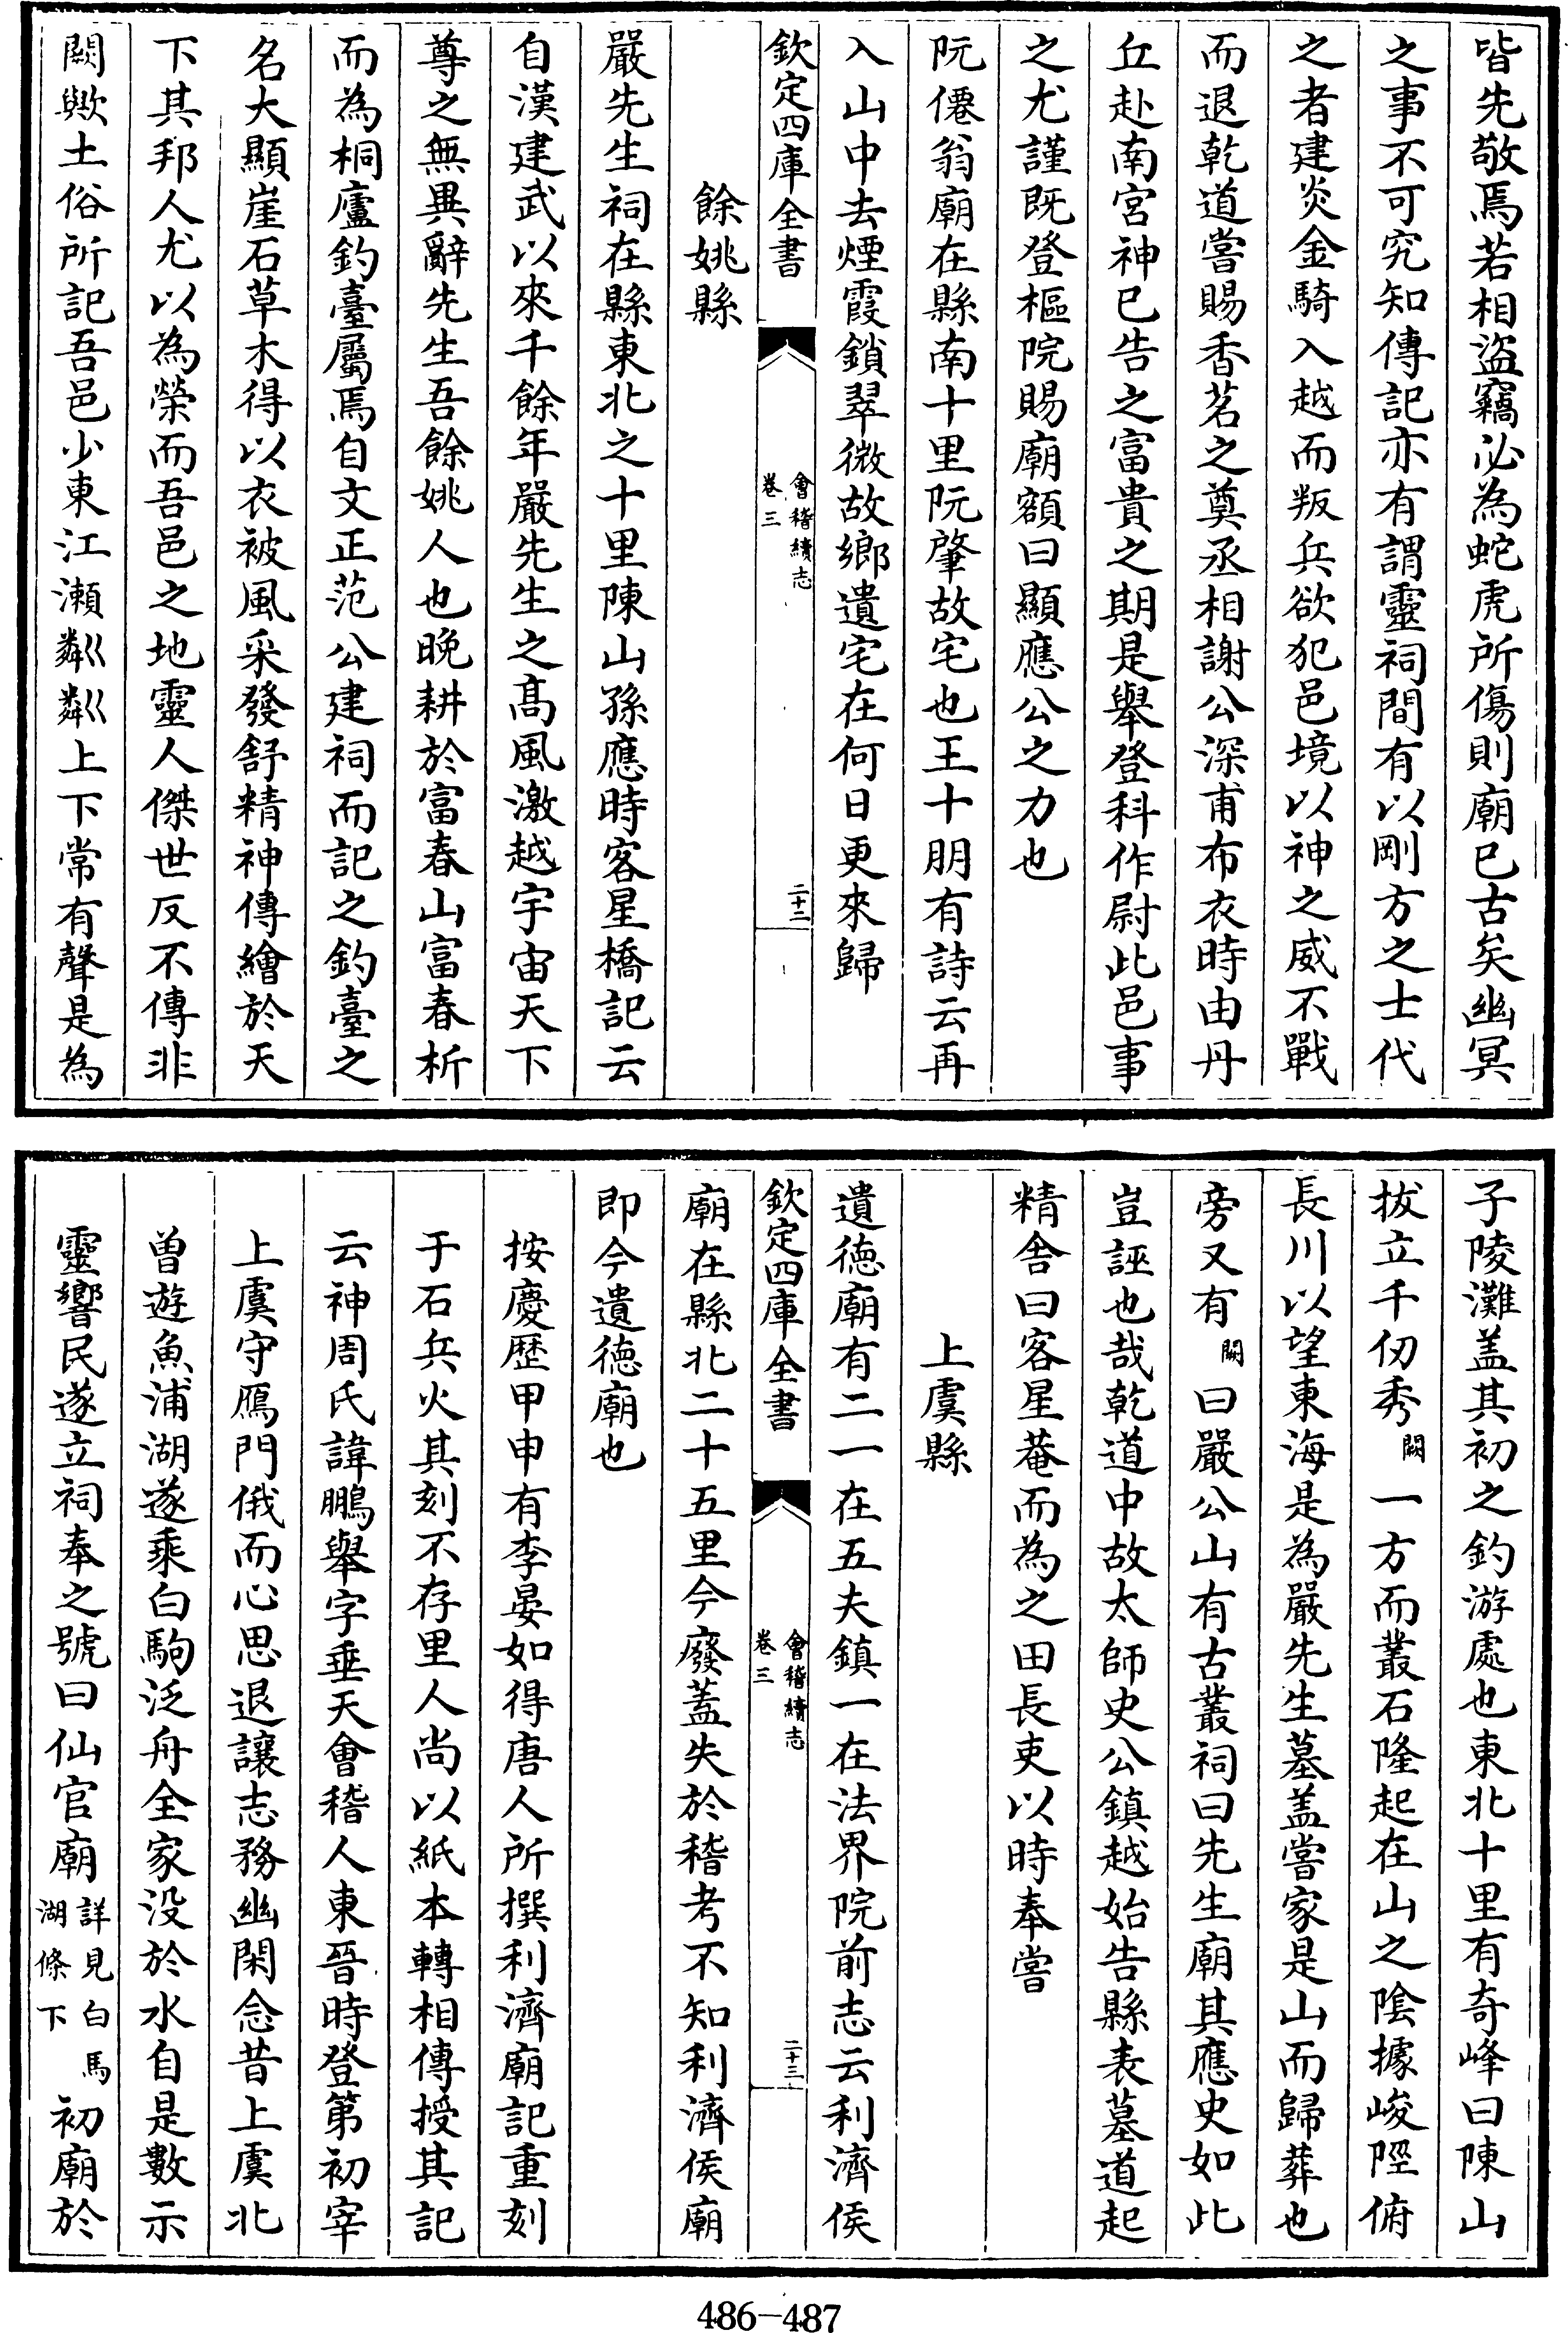 皆先敬焉若相盜竊必為蛇虎所傷則廟已古矣幽冥
之事不可究知傳記亦有謂靈祠間有以剛方之士代
之者建炎金騎入越而叛兵欲犯邑境以神之威不戰
而退乾道嘗賜香茗之奠丞相謝公深甫布衣時由丹
丘赴南宮神已告之富貴之期是舉登科作尉此邑事
之尤謹既登樞院賜廟額曰顯應公之力也
阮僊翁廟在縣南十里阮肇故宅也王十朋有詩云再
入山中去煙霞鎖翠微故鄉遺宅在何日更來歸
欽定四庫全書
會稽續志
卷三
二十二
餘姚縣
嚴先生祠在縣東北之十里陳山孫應時客星橋記云
自漢建武以來千餘年嚴先生之髙風激越宇宙天下
尊之無異辭先生吾餘姚人也晚耕於富春山富春析
而為桐廬釣臺屬焉自文正范公建祠而記之釣臺之
名大顯崖石草木得以衣被風采發舒精神傳繪於天
下其邦人尤以為榮而吾邑之地靈人傑世反不傳非
闕歟土俗所記吾邑少東江瀨粼粼上下常有聲是為
子陵灘盖其初之釣游處也東北十里有奇峰曰陳山
拔立千仞秀闕一方而叢石隆起在山之陰據峻陘俯
長川以望東海是為嚴先生墓盖嘗家是山而歸葬也
旁又有闕曰嚴公山有古叢祠曰先生廟其應史如此
豈誣也哉乾道中故太師史公鎮越始告縣表墓道起
精舍曰客星菴而為之田長吏以時奉嘗
上虞縣
遺徳廟有二一在五夫鎮一在法界院前志云利濟侯
欽定四庫全書
會稽續志
卷三
二十三
廟在縣北二十五里今廢蓋失於稽考不知利濟侯廟
即今遺徳廟也
按慶歴甲申有李晏如得唐人所撰利濟廟記重刻
于石兵火其刻不存里人尚以紙本轉相傳授其記
云神周氏諱鵬舉字垂天會稽人東晉時登第初宰
上虞守鴈門俄而心思退讓志務幽閑念昔上虞北
曾遊魚浦湖遂乘白駒泛舟全家没於水自是數示
靈響民遂立祠奉之號曰仙官廟詳見白馬湖條下初廟於
486-487